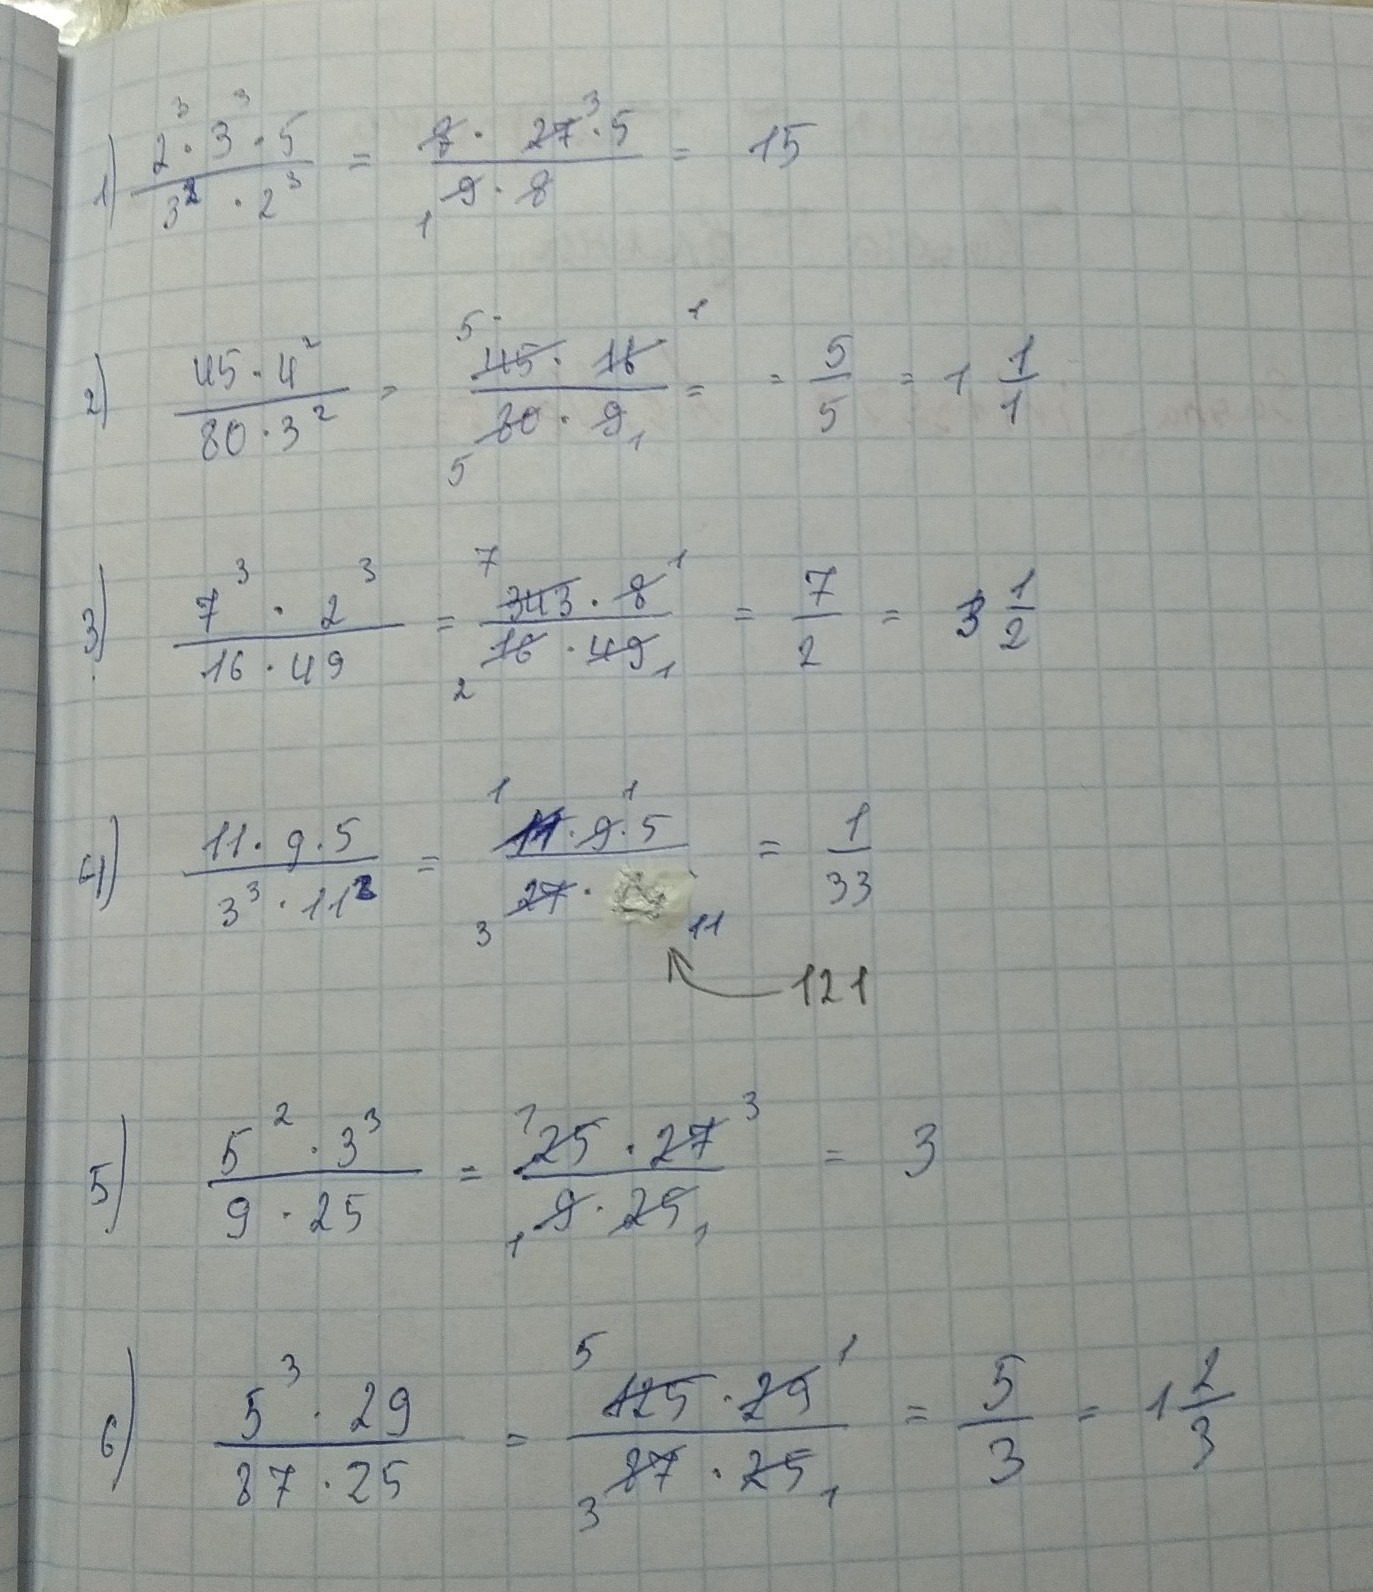 1) (2³ · 3³ · 5)/(3² · 2³) = (8 · 27³ · 5)/(₁9 · 8) = 15
2) (45 · 4²)/(80 · 3²) = (⁵45 · 16¹)/(₅80 · 9₁) = = 5/5 = 1 1/1
3) (7³ · 2³)/(16 · 49) = (⁷343 · 8¹)/(₂16 · 49₁) = 7/2 = 3 1/2
4) (11 · 9 · 5)/(3³ · 11²) = (¹11 · 9¹ · 5)/(₃27 · ₁₁) = 1/33
121
5) (5² · 3³)/(9 · 25) = (¹25 · 27³)/(₁9 · 25₁) = 3
6) (5³ · 29)/(87 · 25) = (⁵125 · 29¹)/(₃87 · 25₁) = 5/3 = 1 2/3